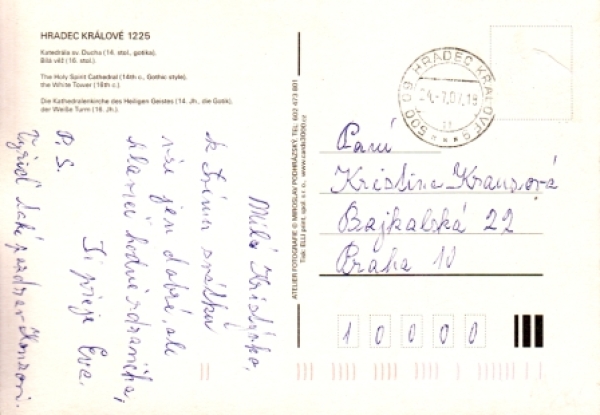 HRADEC KRÁLOVÉ 1225
Katedrála sv. Ducha (14. stol., gotika).
Bílá věž (16. stol.).
The Holy Spirit Cathedral (14th c., Gothic style),
the White Tower (16th c.).
Die Kathedralenkirche des Heiligen Geistes (14. Jh., die Gotik),
der Weiße Turm (16. Jh.).
Milá Kristýnko,
k Tvému svátku
vše jen dobré, ale
hlavně hodně zdravíčka,
Ti přeje Eva.
P. S.
Vyřiď také pozdrav Honzovi.
ATELIER FOTOGRAFIE © MIROSLAV PODHRÁZSKÝ, TEL. 602 473 801
Tisk: ELLI print, spol. s r. o., www.cards3000.cz
HRADEC KRÁLOVÉ
500 09
Paní
Kristina Krausová
Bajkalská 22
Praha 10
10000